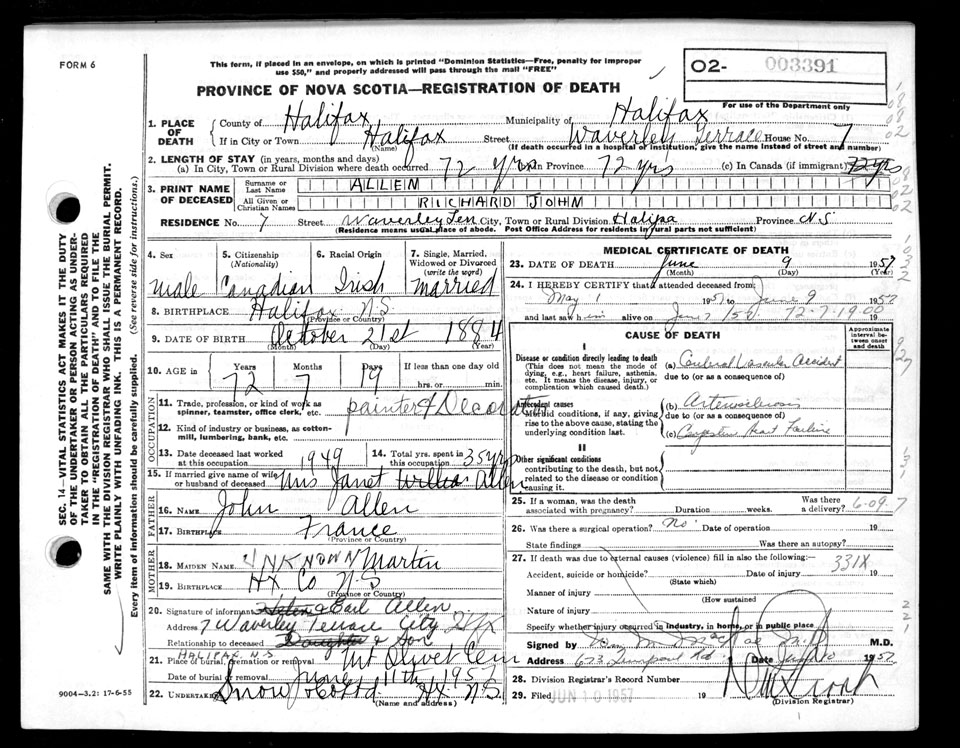 FORM 6
This form, if placed in an envelope, on which is printed "Dominion Statistics—Free, penalty for improper
use $50," and properly addressed will pass through the mail "FREE"
O2- 003391
PROVINCE OF NOVA SCOTIA—REGISTRATION OF DEATH
For use of the Department only
1. PLACE OF DEATH { County of Halifax Municipality of Halifax
If in City or Town Halifax (Name) Street Waverley Terrace House No. 7
(If death occurred in a hospital or institution, give the name instead of street and number)
2. LENGTH OF STAY (in years, months and days)
(a) In City, Town or Rural Division where death occurred 72 yrs (b) In Province 72 yrs (c) In Canada (if immigrant) 72 yrs
3. PRINT NAME OF DECEASED { Surname or Last Name ALLEN
All Given or Christian Names RICHARD JOHN
RESIDENCE No. 7 Street Waverley Terr City, Town or Rural Division Halifa Province N.S
(Residence means usual place of abode. Post Office Address for residents in rural parts not sufficient)
4. Sex male
5. Citizenship (Nationality) Canadian
6. Racial Origin Irish
7. Single, Married, Widowed or Divorced (write the word) married
8. BIRTHPLACE Halifax N.S
(Province or Country)
9. DATE OF BIRTH October 21st 1884
(Month) (Day) (Year)
10. AGE in Years 72 Months 7 Days 19 If less than one day old
hrs. or min.
OCCUPATION
11. Trade, profession or kind of work as spinner, teamster, office clerk, etc. painter & Decorator
12. Kind of industry or business, as cotton-mill, lumbering, bank, etc.
13. Date deceased last worked at this occupation 1949 14. Total yrs. spent in this occupation 35 yrs
15. If married give name of wife or husband of deceased Mrs Janet Allen
FATHER
16. NAME John Allen
17. BIRTHPLACE France
(Province or Country)
MOTHER
18. MAIDEN NAME UNKNOWN Martin
19. BIRTHPLACE Hx Co N.S
(Province or Country)
20. Signature of informant Helen & Earl Allen
Address 7 Waverley Terrace City
Relationship to deceased Daughter & Son
HALIFAX, N.S.
21. Place of burial, cremation or removal Mt Olivet Cem
Date of burial or removal June 11th 1957
22. Undertaker Snow & Co Ltd Hx N.S.
(Name and address)
9004-3.2: 17-6-55
SEC. 14—VITAL STATISTICS ACT MAKES IT THE DUTY
OF THE UNDERTAKER OR PERSON ACTING AS UNDER-
TAKER TO OBTAIN ALL THE PARTICULARS REQUIRED
IN THE "REGISTRATION OF DEATH" AND TO FILE THE
SAME WITH THE DIVISION REGISTRAR WHO SHALL ISSUE THE BURIAL PERMIT.
WRITE PLAINLY WITH UNFADING INK. THIS IS A PERMANENT RECORD.
Every item of information should be carefully supplied. (See reverse side for instructions.)
MEDICAL CERTIFICATE OF DEATH
23. DATE OF DEATH June 9 1957
(Month) (Day) (Year)
24. I HEREBY CERTIFY that I attended deceased from:
May 1 1957 to June 9 1957
and last saw him alive on June 7 19
CAUSE OF DEATH
Approximate interval between onset and death
I
Disease or condition directly leading to death
(This does not mean the mode of dying, e.g., heart failure, asthenia, etc. It means the disease, injury, or complication which caused death.)
(a) Cerebral Vascular Accident
due to (or as a consequence of)
Antecedent causes
Morbid conditions, if any, giving rise to the above cause, stating the underlying condition last.
(b) Arteriosclerosis
due to (or as a consequence of)
(c) Congestive Heart Failure
II
Other significant conditions
contributing to the death, but not related to the disease or condition causing it.
25. If a woman, was the death associated with pregnancy? Duration weeks. Was there a delivery?
26. Was there a surgical operation? No Date of operation 19
State findings Was there an autopsy?
27. If death was due to external causes (violence) fill in also the following:—
331X
Accident, suicide or homicide? Date of injury 19
(State which)
Manner of injury
(How sustained
Nature of injury
Specify whether injury occurred in industry, in home, or in public place
Signed by M.D.
Address Date 1957
28. Division Registrar's Record Number
29. Filed JUN 10 1957 19
(Division Registrar)